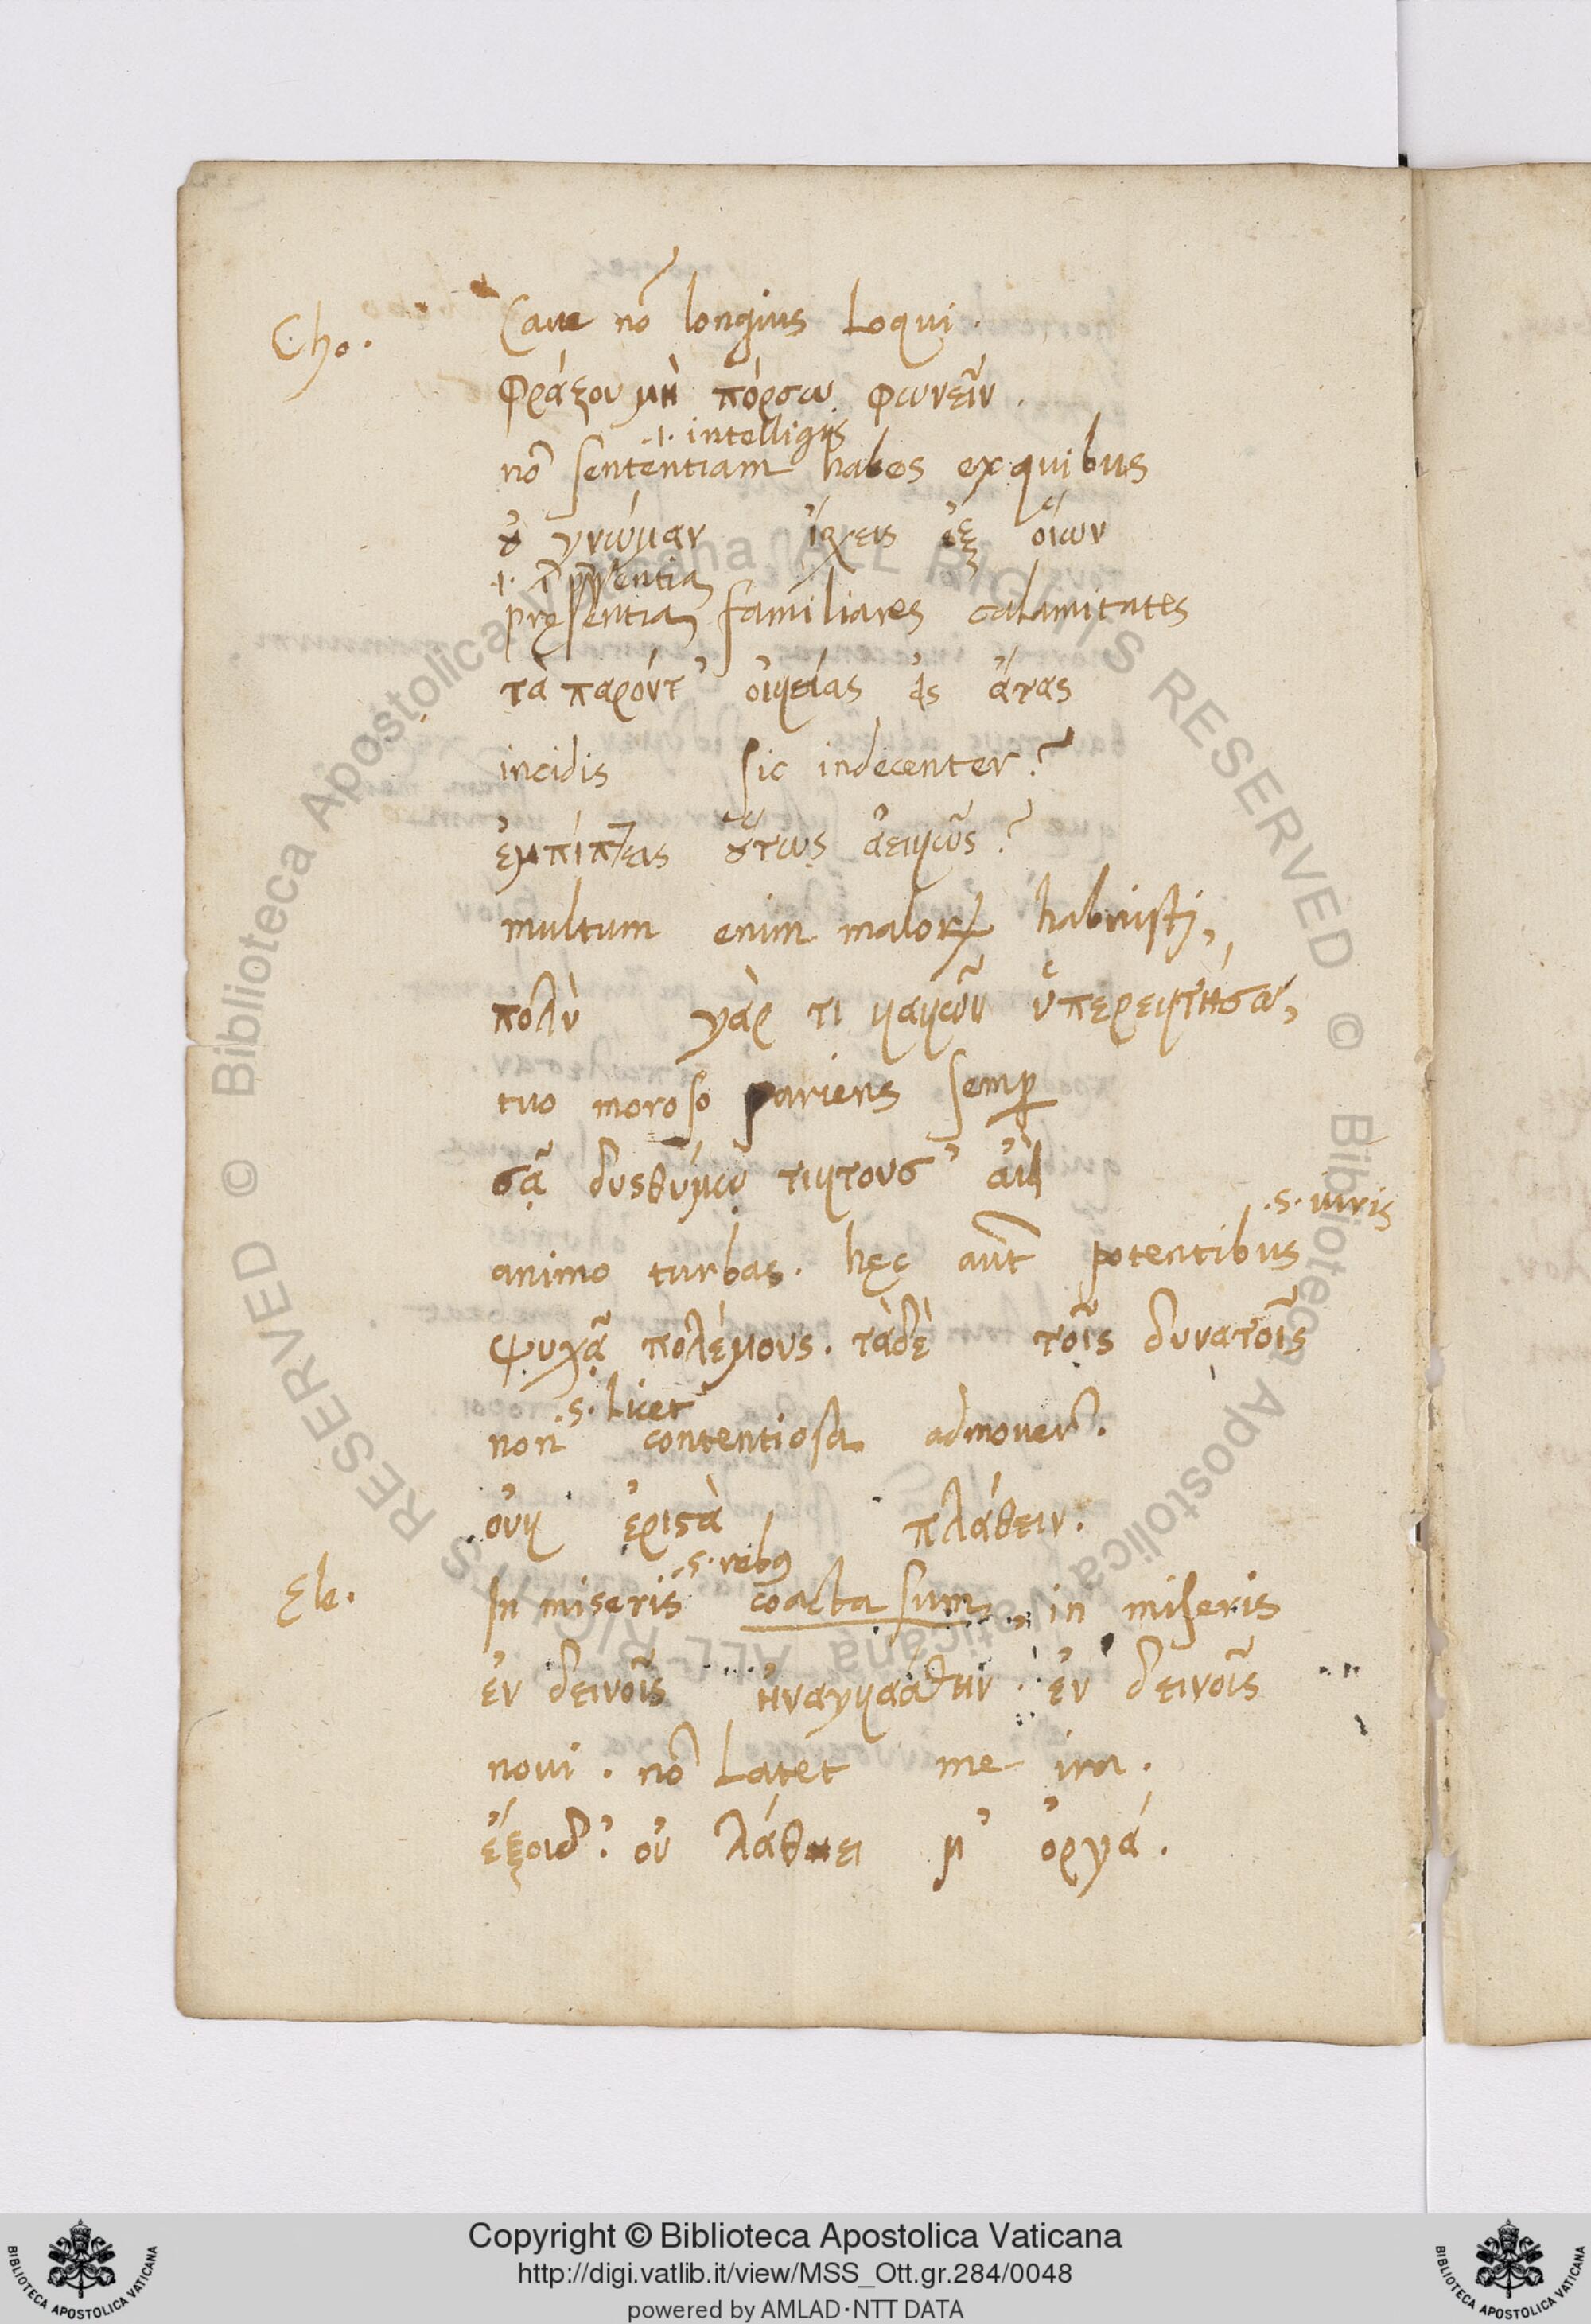 Cho. Caue nō longius Loqui.
φράζου μὴ πόρσω φωνεῖν.
.i. intelligis
nō sententiam habes ex quibus
ȣ̓ γνώμαν ἴσχεις ἐξ οἵων
pręsentia familiares calamitates
τὰ παρόντ' οἰκείας εἰς ἄτας
incidis sic indecenter?
ἐμπίπτεις ȣ̔́τως ἀεικῶς?
multum enim malorꝝ habuisti,
πολὺ γάρ τι κακῶν ὑπερεκτήσω,
tuo moroso pariens semꝑ
σᾷ δυσθύμῳ τίκτουσ' αἰεὶ
.s. uiris
animo turbas. hęc aūt potentibus
ψυχᾷ πολέμους. τάδὲ τοῖς δυνατοῖς
.s. licet
non contentiosa admouer̃.
οὐκ ἐριστὰ πλάθειν.
.s. rebꝰ
Ele. In miseris coacta sum, in miseris
ἐν δεινοῖς ἠναγκάσθην. ἐν δεινοῖς
noui. nō Latet me ira.
ἔξοιδ'. οὐ λάθει μ' ὀργά.
Copyright © Biblioteca Apostolica Vaticana
http://digi.vatlib.it/view/MSS_Ott.gr.284/0048
powered by AMLAD·NTT DATA